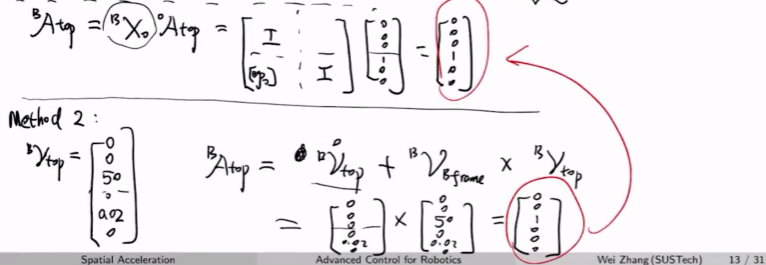 ᴮA_top = (ᴮX₀) ⁰A_top = [I ; [⁰p₀] I] [0 0 0 1 0 0] = [0 0 0 1 0 0]
Method 2 :
ᴮV_top = [0 0 50 0 0.02 0]
ᴮA_top = ᴮV̊_top + ᴮV_Bframe × ᴮV_top
= [0 0 0 0 0.02] × [0 0 50 0 0.02 0] = [0 0 1 0 0]
Spatial Acceleration Advanced Control for Robotics Wei Zhang (SUSTech) 13 / 31